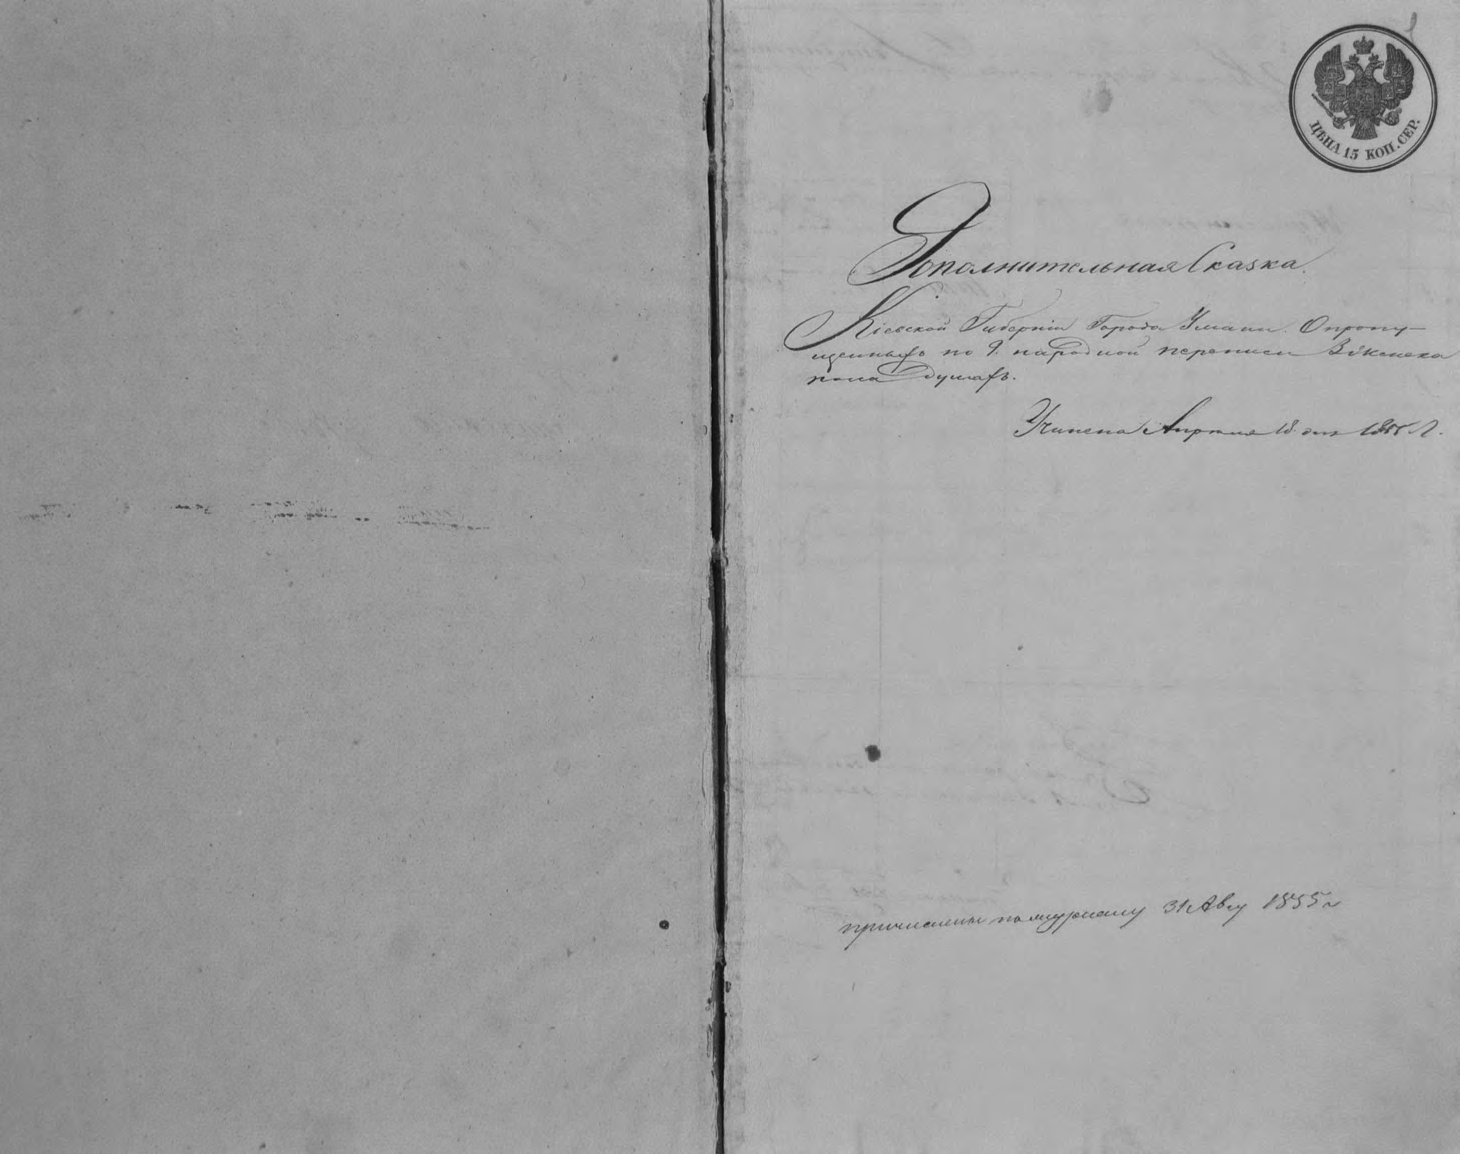 ЦѢНА 15 КОП. СЕР.
Дополнительная Сказка.
Кіевской Губерніи Города Умани. О пропу-
щенныхъ по 9. народной переписи Еӏженска
пола душахъ.
Учинена Апреля 18. дня 1855 г.
причислены по журналу 31 Авгу 1855 г